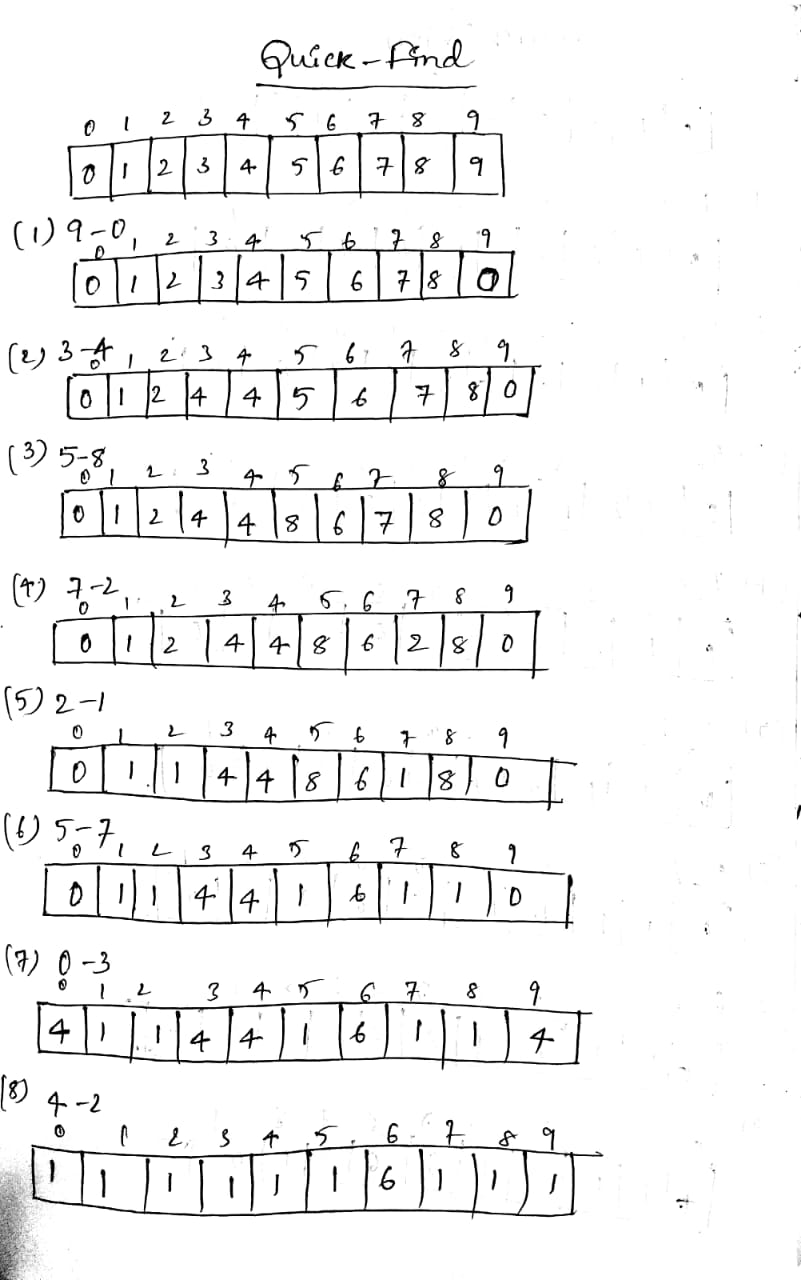 Quick-find
0 1 2 3 4 5 6 7 8 9
0 1 2 3 4 5 6 7 8 9
(1) 9-0
0 1 2 3 4 5 6 7 8 9
0 1 2 3 4 5 6 7 8 0
(2) 3-4
0 1 2 3 4 5 6 7 8 9
0 1 2 4 4 5 6 7 8 0
(3) 5-8
0 1 2 3 4 5 6 7 8 9
0 1 2 4 4 8 6 7 8 0
(4) 7-2
0 1 2 3 4 5 6 7 8 9
0 1 2 4 4 8 6 2 8 0
(5) 2-1
0 1 2 3 4 5 6 7 8 9
0 1 1 4 4 8 6 1 8 0
(6) 5-7
0 1 2 3 4 5 6 7 8 9
0 1 1 4 4 1 6 1 1 0
(7) 0-3
0 1 2 3 4 5 6 7 8 9
4 1 1 4 4 1 6 1 1 4
(8) 4-2
0 1 2 3 4 5 6 7 8 9
1 1 1 1 1 1 6 1 1 1